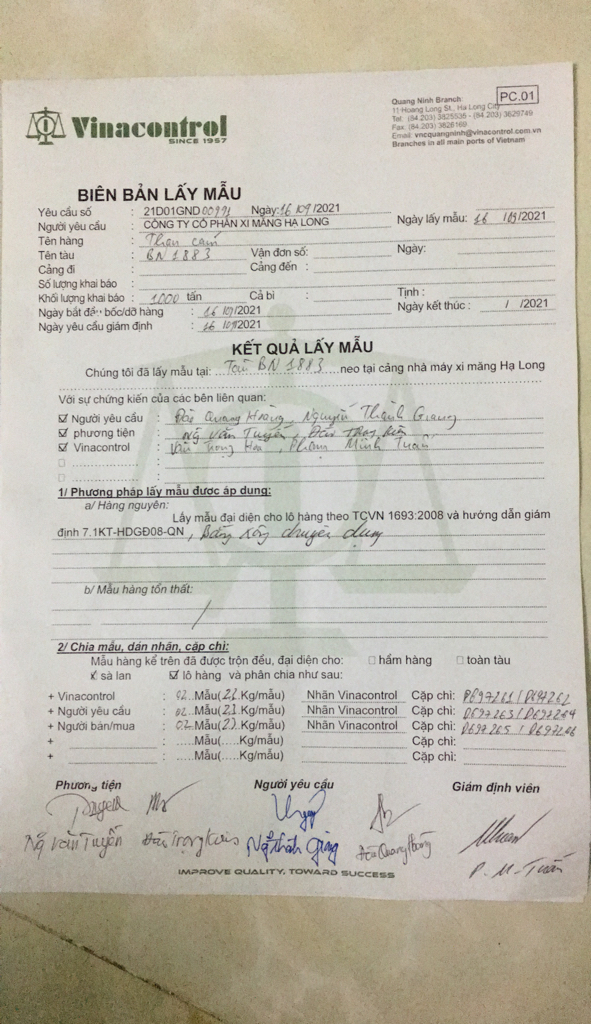 Vinacontrol
SINCE 1957
PC.01
Quang Ninh Branch
11-Hoang Long St., Ha Long City
Tel: (84.203) 3825536 - (84.203) 3629749
Fax: (84.203) 3826169
Email: vncquangninh@vinacontrol.com.vn
Branches in all main ports of Vietnam
BIÊN BẢN LẤY MẪU
Yêu cầu số : 21D01GND Ngày: 16/09/2021
Người yêu cầu : CÔNG TY CỔ PHẦN XI MĂNG HẠ LONG Ngày lấy mẫu: 16 /09/2021
Tên hàng : Than cám
Tên tàu : BN 1883 Vận đơn số: Ngày:
Cảng đi : Cảng đến :
Số lượng khai báo :
Khối lượng khai báo : 1000 tấn Cả bì : Tịnh :
Ngày bắt đầu bốc/dỡ hàng : 16/09/2021 Ngày kết thúc : / /2021
Ngày yêu cầu giám định : 16/09/2021
KẾT QUẢ LẤY MẪU
Chúng tôi đã lấy mẫu tại: Tàu BN 1883 neo tại cảng nhà máy xi măng Hạ Long
Với sự chứng kiến của các bên liên quan:
Người yêu cầu : Đào Quang Hoàng, Nguyễn Thành Giang
phương tiện : Ng Văn Tuyển, Đào
Vinacontrol : Văn Trọng Hoà, Phạm Minh Tuấn
1/ Phương pháp lấy mẫu được áp dụng:
a/ Hàng nguyên:
Lấy mẫu đại diện cho lô hàng theo TCVN 1693:2008 và hướng dẫn giám
định 7.1KT-HDGĐ08-QN, chuyên dụng
b/ Mẫu hàng tổn thất:
/
2/ Chia mẫu, dán nhãn, cặp chì:
Mẫu hàng kể trên đã được trộn đều, đại diện cho: hầm hàng toàn tàu
sà lan lô hàng và phân chia như sau:
+ Vinacontrol : 02 Mẫu(2 Kg/mẫu) Nhãn Vinacontrol Cặp chì:
+ Người yêu cầu : 02 Mẫu(2 Kg/mẫu) Nhãn Vinacontrol Cặp chì:
+ Người bán/mua : 02 Mẫu(2 Kg/mẫu) Nhãn Vinacontrol Cặp chì:
+ : .....Mẫu(.....Kg/mẫu) Cặp chì:
+ : .....Mẫu(.....Kg/mẫu) Cặp chì:
Phương tiện Người yêu cầu Giám định viên
Ng Văn Tuyển Ng Thành Giang Đào Quang Hoàng
P. M. Tuấn
IMPROVE QUALITY, TOWARD SUCCESS